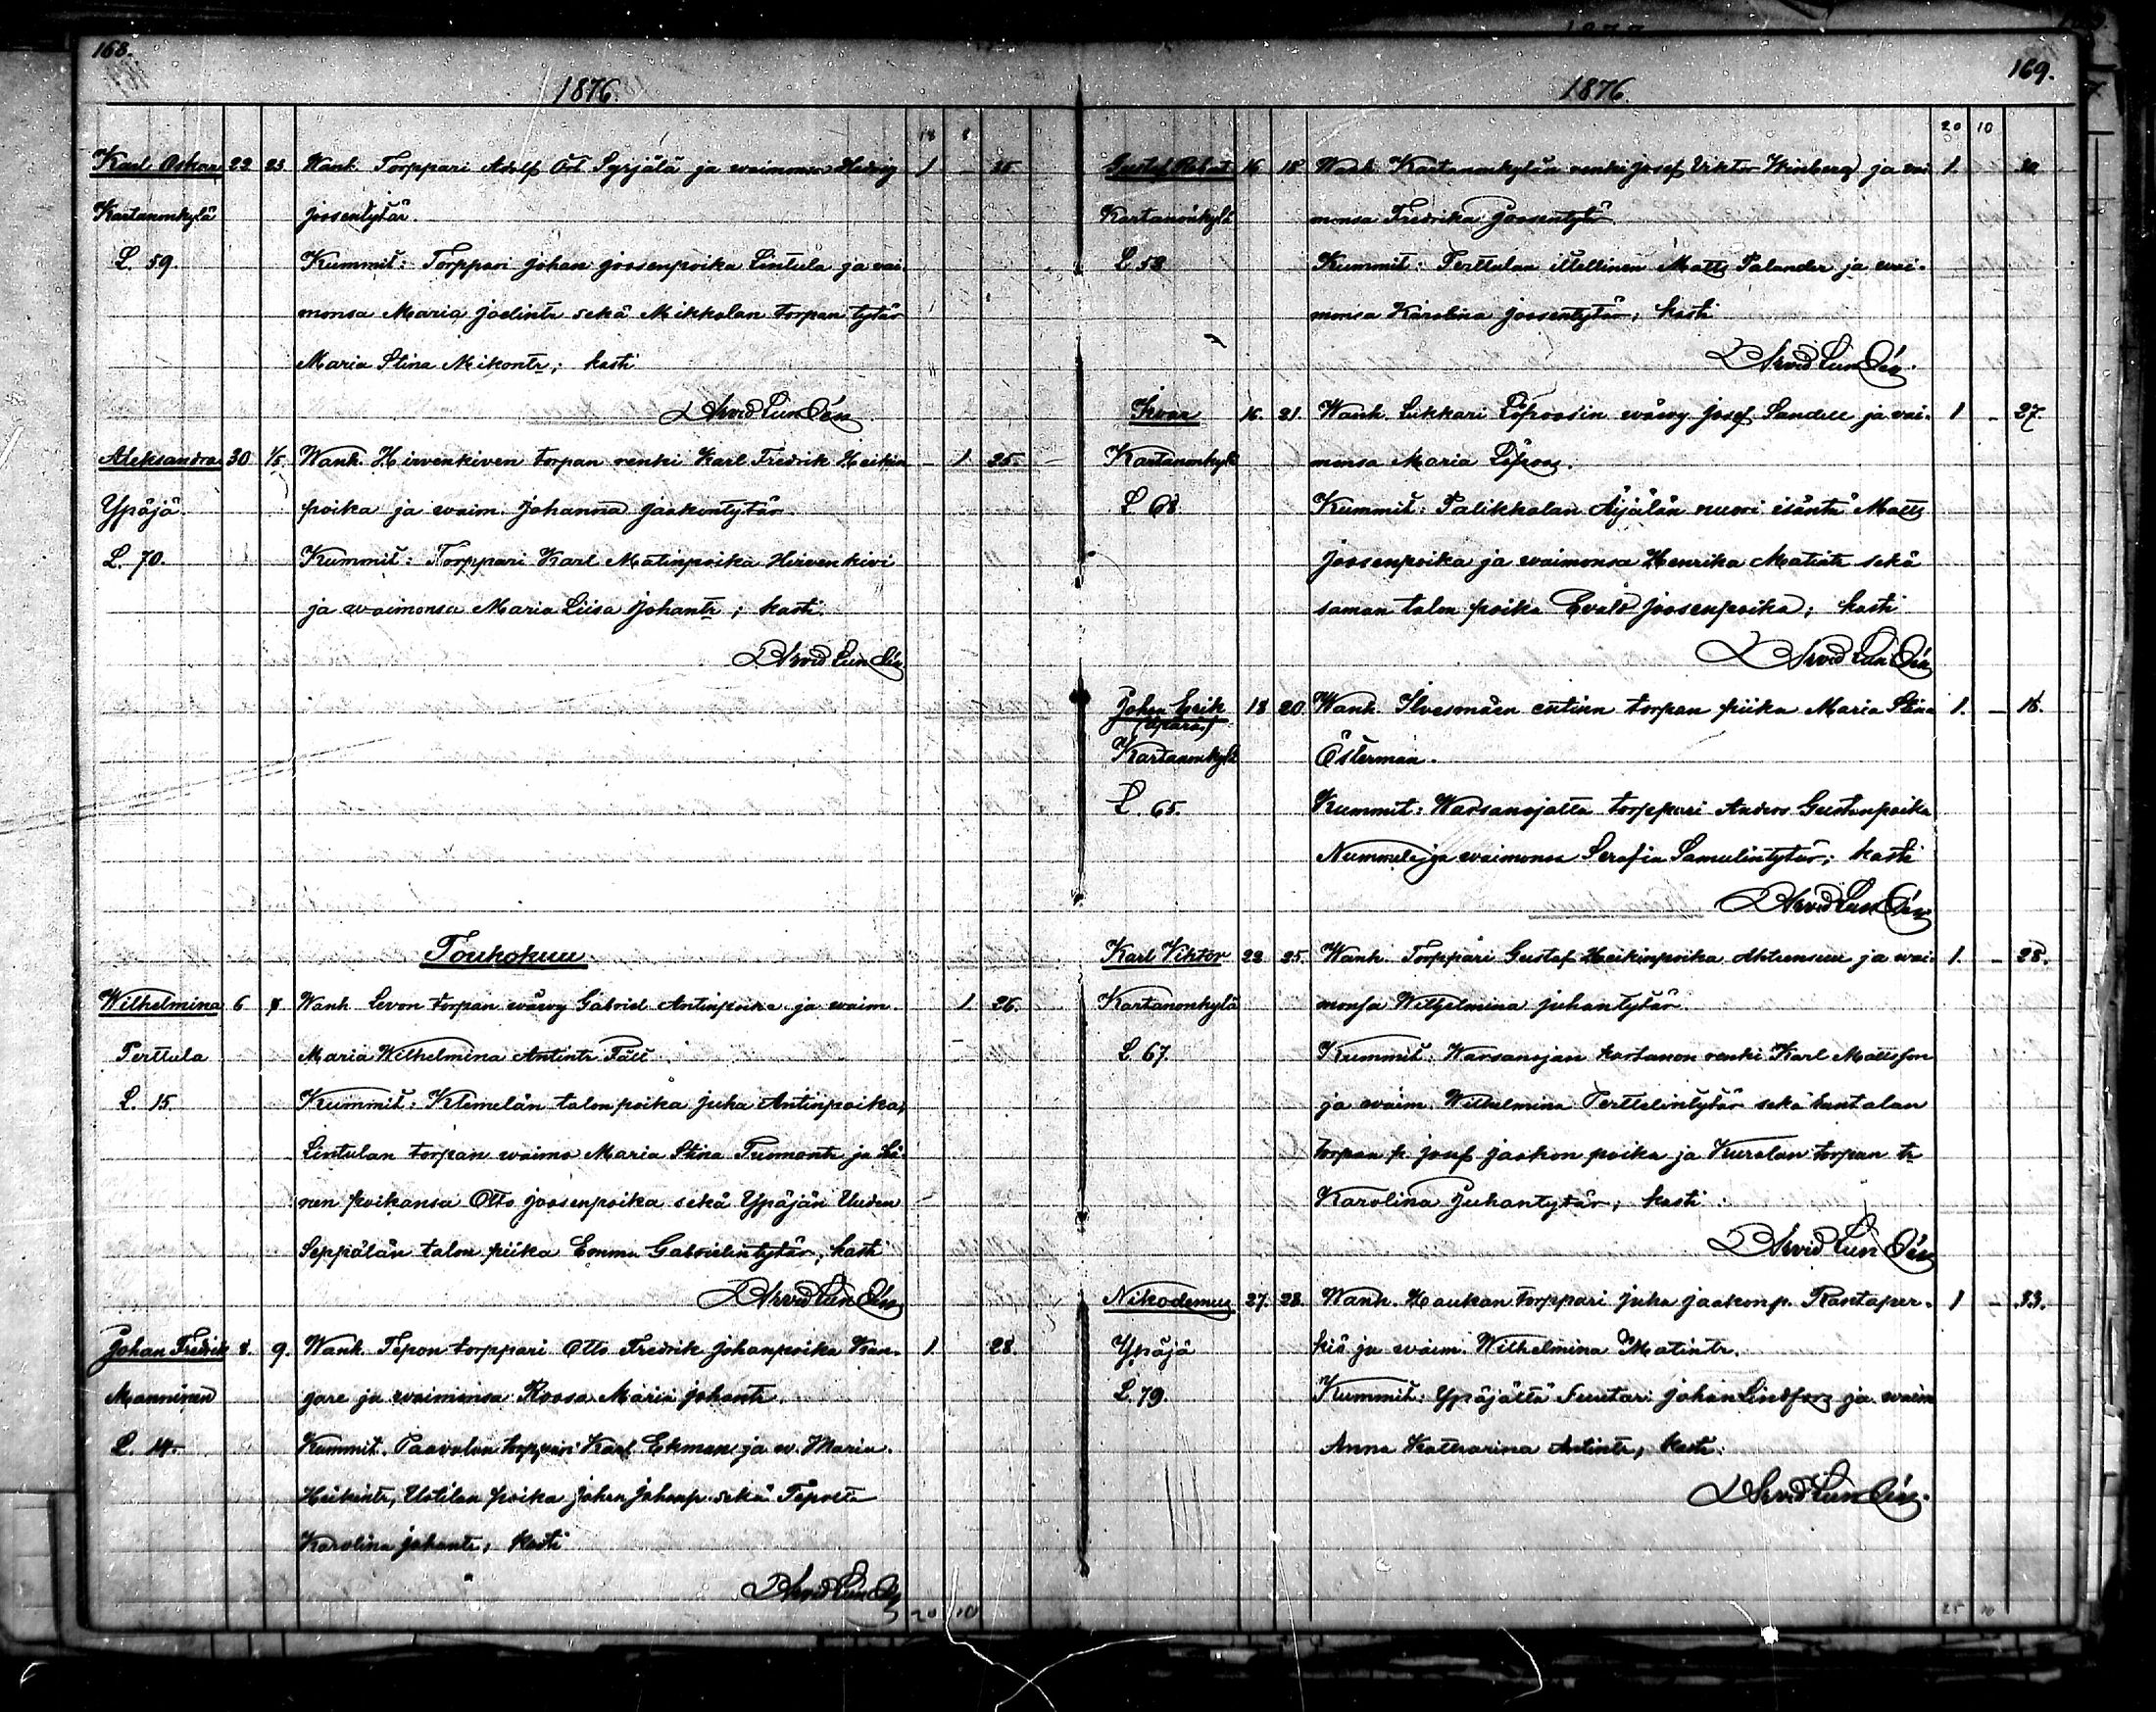 168.
1876.
18 8
Karl Oskar 22 23 Wanh. Torppari Adolf Syrjälä ja waimonsa Hedvig 1 -
Kartanonkylä Joosentytär
L. 59. Kummit: Torppari Johan Joosenpoika Lintula ja wai-
monsa Maria sekä Mikkolan torpan tytär
Maria Stina Mikontr; kasti
Arvid Lundén
Aleksandra 30 1/5. Wanh. Hirvenkiven torpan renki Karl Fredrik Heikin - 1 25.
Ypäjä. poika ja waim. Johanna Jaakontytär.
L. 70. Kummit: Torppari Karl Matinpoika Hirvenkivi
ja waimonsa Maria Liisa Johantr; kasti.
Arvid Lundén
Toukokuu
Wilhelmina 6 8 Wanh. Levon torpan wäwy Gabriel Antinpoika ja waim. 1 26.
Perttula Maria Wilhelmina Antintr Fält
L. 15. Kummit: Klemelän talon poika Juha Antinpoika,
Lintulan torpan waimo Maria Stina Tuomontr ja
nen poikansa Otto Joosenpoika sekä Ypäjän Uuden
Seppälän talon piika Emma Gabrielintytär; kasti
Arvid Lundén
Johan Fredrik 8. 9. Wanh. Tepon torppari Otto Fredrik Johanpoika 1 28.
Manninen gare ja waimonsa Roosa Maria Johantr.
L. 14. Kummit. Paavolan torppari Karl Ekman ja w. Maria
Heikintr, Uotilan poika Johan Johanp. sekä
Karolina Johantr; kasti
Arvid Lundén
20 10
169.
1876.
20 10
Gustaf Robert 16 18 Wanh. Kartanonkylän renki Josef Viktor Winberg ja wai 1.
Kartanonkylä monsa Fredrika Joosentytär
L. 53 Kummit: Perttulan itsellinen Matts Palander ja wai-
monsa Karolina Joosentytär; kasti
Arvid Lundén.
Iivar 16. 21. Wanh. Lukkari wäwy Josef Sandell ja wai- 1 - 27.
Kartanonkylä monsa Maria
L. 68. Kummit: Palikkalan Äijälän nuori isäntä Matts
Joosenpoika ja waimonsa Henrika Matintr sekä
saman talon poika Evald Joosenpoika; kasti
Arvid Lundén
Johan Erik 18 20. Wanh. Ilvesmäen entinen torpan piika Maria Stina 1. - 18.
(äpärä)
Kartanonkylä Österman.
L. 65. Kummit: Warsanojalta torppari Anders Gustavpoika
Nummela ja waimonsa Serafia Samulintytär; kasti
Arvid Lundén
Karl Viktor 22 25. Wanh. Torppari Gustaf Heikinpoika Ahtensuu ja wai- 1. - 28.
Kartanonkylä monsa Wilhelmina Juhantytär.
L. 67. Kummit: Warsanojan kartanon renki Karl Mattsson
ja waim. Wilhelmina Perttelintytär sekä
torpan p. Josef Jaakon poika ja Kuralan torpan tr
Karolina Juhantytär; kasti:
Arvid Lundén
Nikodemus 27. 28. Wanh. Haukan torppari Juha Jaakonp. Rantaper- 1 - 33.
Ypäjä kiö ja waim. Wilhelmina Matintr.
L. 79. Kummit: Ypäjältä Suutari Johan Lindfors ja waim
Anna Katharina Antintr, kasti:
Arvid Lundén.
25 10